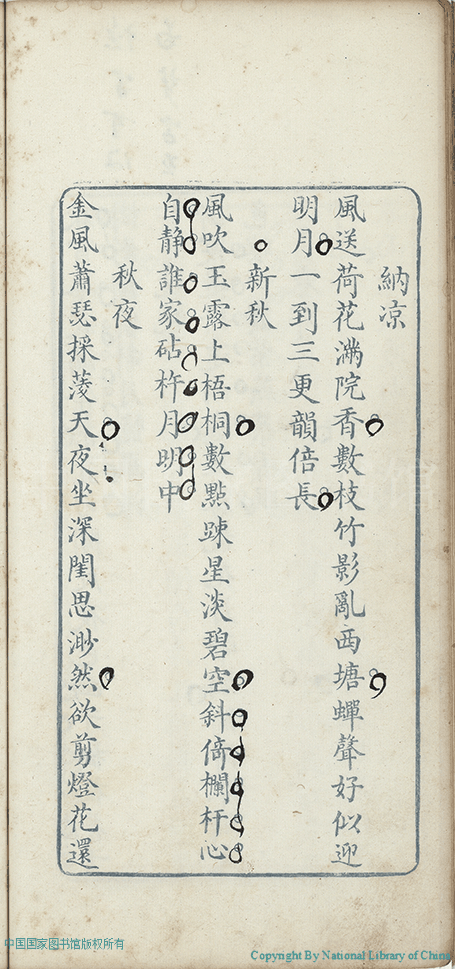 納凉
風送荷花滿院香數枝竹影亂西塘蟬聲好似迎
明月一到三更韻倍長
新秋
風吹玉露上梧桐數點踈星淡碧空斜倚欄杆心
自静誰家砧杵月明中
秋夜
金風蕭瑟採蓤天夜坐深閨思渺然欲剪燈花還
中国国家图书馆版权所有
Copyright By National Library of China